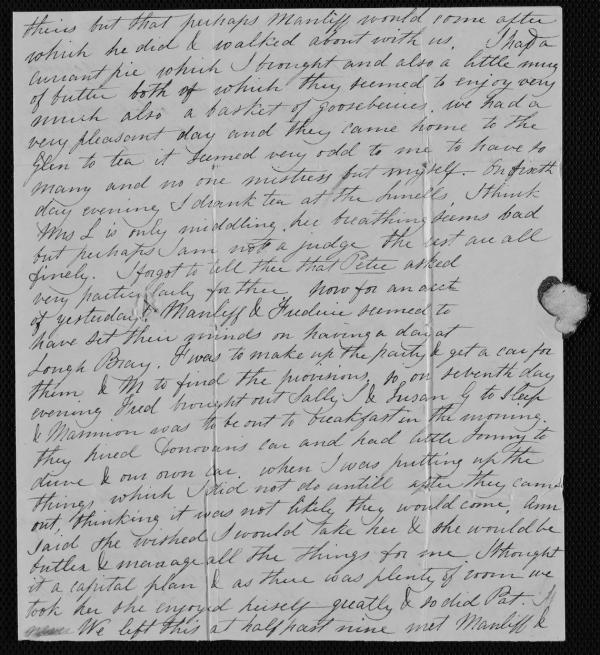 theirs but that perhaps Manliff would come after
which he did & walked about with us. I had a
currant pie which I brought and also a little mug
of butter both of which they seemed to enjoy very
much also a basket of gooseberries. we had a
very pleasant day and they came home to the
Glen to tea it seemed very odd to me to have so
many and no one mistress but myself. On sixth
day evening I drank tea at the Linells, I think
Mrs L is only middling, her breathing seems bad
but perhaps I am not a judge the rest are all
finely. I forgot to tell thee that Petie asked
very particularly for thee now for an acct
of yesterday, Manliff & Frederic seemed to
have set their minds on having a day at
Lough Bray. I was to make up the party & get a car for
them, & M to find the provisions, so, on seventh day
evening Fred brought out Sally J & Susan G to sleep
& Mannion was to be out to breakfast in the morning.
they hired Donovans car and had little Jonny to
drive & our own car. when I was putting up the
things which I did not do untill after they came
out, thinking it was not likely they would come, Ann
said she wished I would take her & she would be
butler & manage all the things for me I thought
it a capital plan & as there was plenty of room we
took her she enjoyed herself greatly & so did Pat.
We left this at half past nine met Manliff &